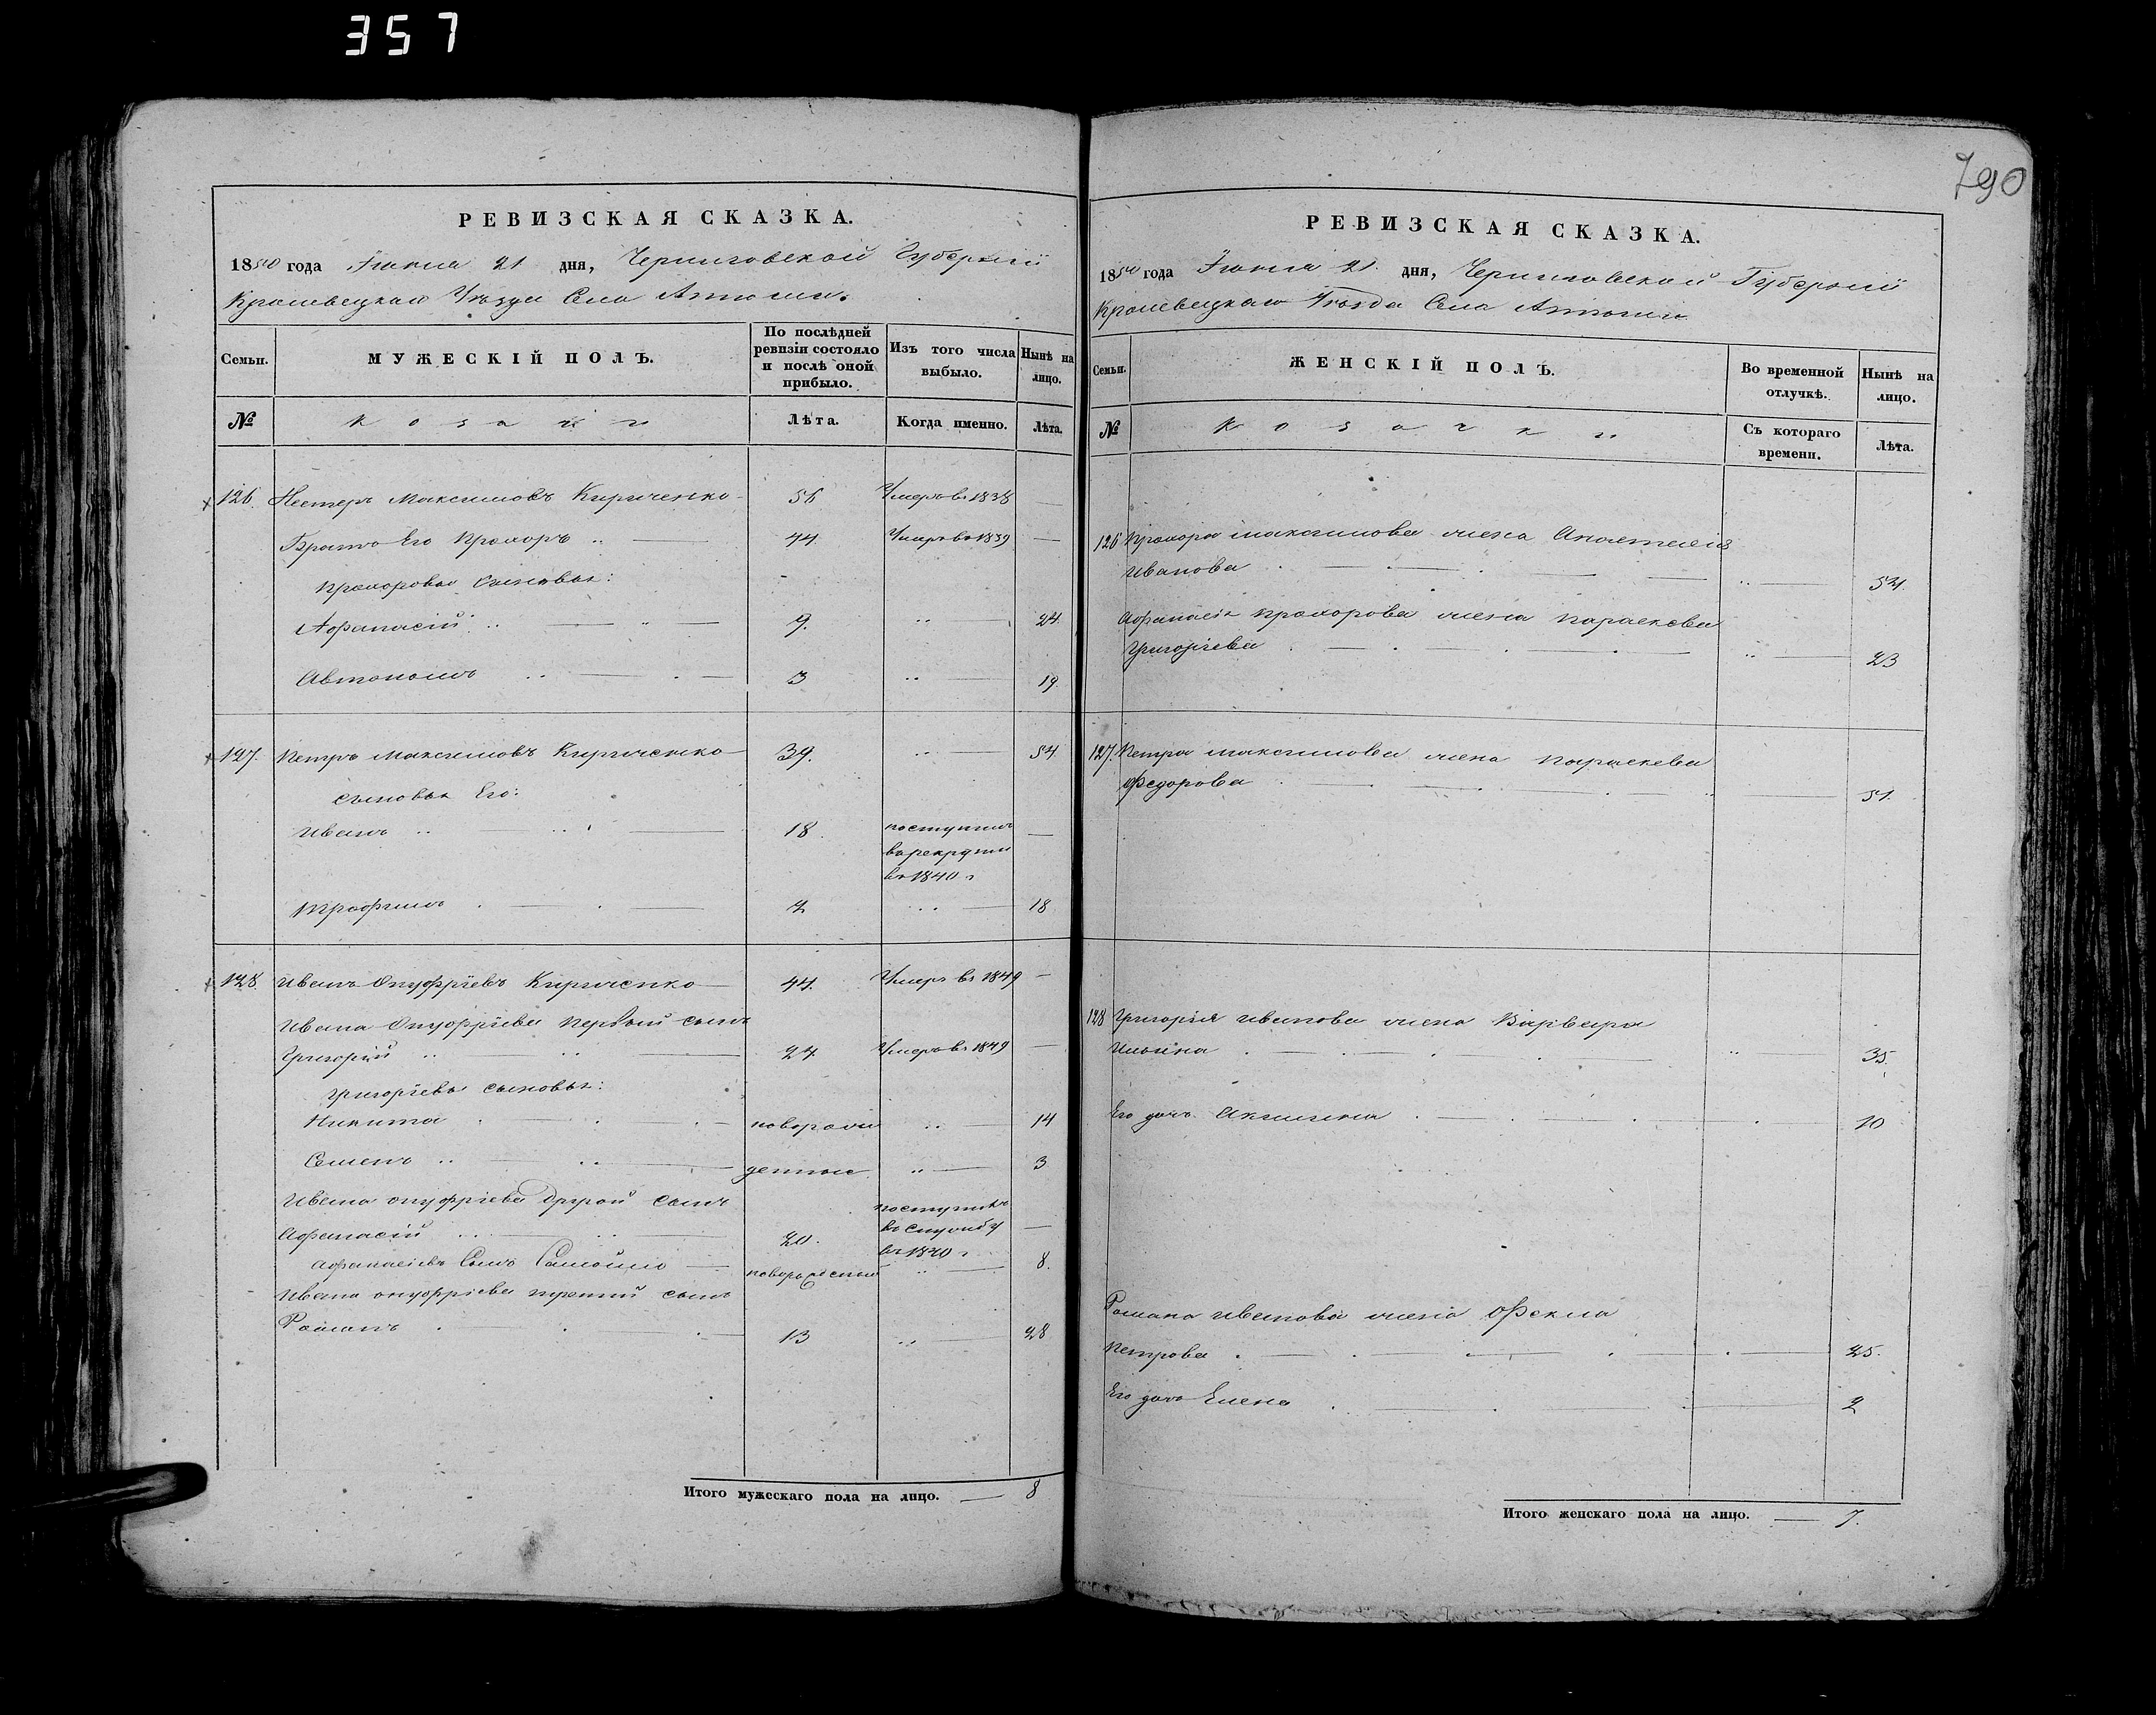 357
790
РЕВИЗСКАЯ СКАЗКА.
1850 года Іюня 21 дня, Черниговской Губерніи
Кролевецкаго Уѣзда Села
Семьи.
МУЖЕСКІЙ ПОЛЪ.
По послѣдней ревизіи состояло и послѣ оной прибыло.
Изъ того числа выбыло.
Нынѣ на лицо.
№
Козаки
Лѣта.
Когда именно.
Лѣта.
126. Нестеръ Максимовъ Кириченко 56 Умеръ въ 1838 —
Братъ Его Прохоръ 44 Умеръ въ 1839 —
Прохоровы сыновья:
Афанасій 9. 24.
Автономъ 3 19.
127. Петръ Максимовъ Кириченко 39. 54
сыновья Его:
Иванъ 18. поступилъ —
въ рекруты
въ 1840 г
Трофимъ 18
128. Иванъ Онуфріевъ Кириченко 44. Умеръ въ 1849 —
Ивана Онуфріева первый сынъ
Григорій 24 Умеръ въ 1849 —
Григорьевы сыновья:
Никита новорож 14
Семенъ денные 3
Ивана Онуфріева другой сынъ
Афанасій 20. поступилъ въ службу въ 1840 г —
Афанасіевъ Сынъ Самойло новорожденный 8.
Ивана Онуфріева третій сынъ
Романъ 13 28
Итого мужескаго пола на лицо. — 8
РЕВИЗСКАЯ СКАЗКА.
1850 года Іюня 21. дня, Черниговской Губерніи
Кролевецкаго Уѣзда Села
Семьи.
ЖЕНСКІЙ ПОЛЪ.
Во временной отлучкѣ.
Нынѣ на лицо.
№
Козачки
Съ котораго времени.
Лѣта.
126 Прохора Максимова жена Анастасія
Иванова 54.
Афанасія Прохорова жена Параскева
Григорьева 23
127. Петра Максимова жена Параскева
Федорова 51.
128 Григорія Иванова жена Варвара
Ильина 35.
Его дочь Акилина 10
Романа Иванова жена Фекла
Петрова 25.
Его дочь Елена 2
Итого женскаго пола на лицо. — 7.